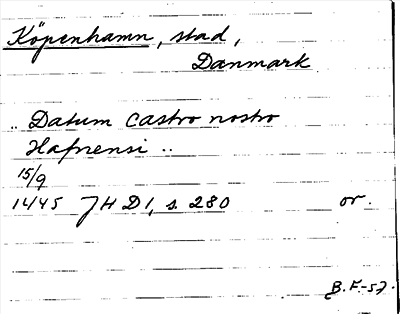 Köpenhamn, stad,
Danmark
.. Datum castro nostro
Hafnensi ..
15/9
1445 JHD1, s. 280 or.
B.F-57.